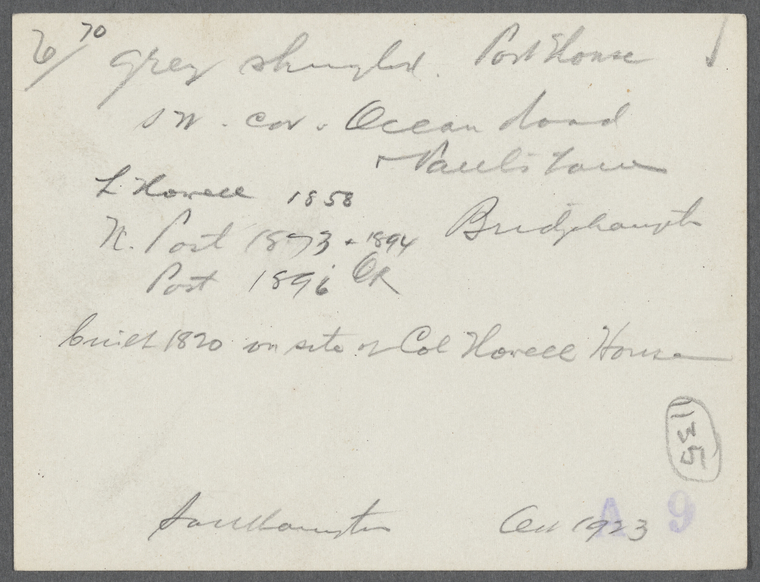 6/70 grey shingled. Post House
SW. cor. Ocean Road
+ Paul's Lane
L. Howell 1858
Bridgehampton
N. Post 1873 + 1894
Post 1896 OR
built 1820 on site of Col Howell House
1135
Southampton Oct 1923
A 9